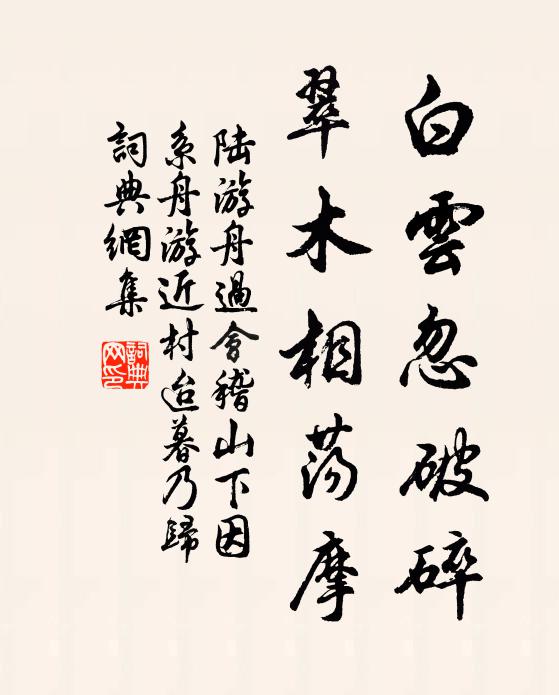 白雲忽破碎
翠木相蕩摩
陆游舟過會稽山下因
系舟游近村迨暮乃歸
詞典網集
詞典
网印